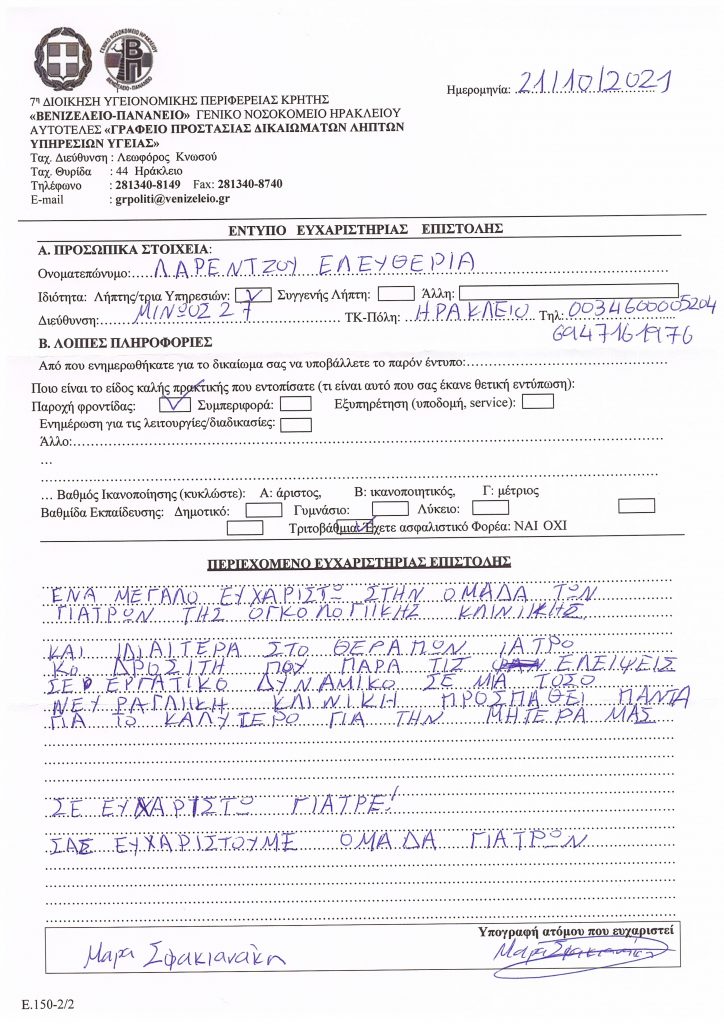 ΓΕΝΙΚΟ ΝΟΣΟΚΟΜΕΙΟ ΗΡΑΚΛΕΙΟΥ
ΒΕΝΙΖΕΛΕΙΟ-ΠΑΝΑΝΕΙΟ
Ημερομηνία: 21/10/2021
7η ΔΙΟΙΚΗΣΗ ΥΓΕΙΟΝΟΜΙΚΗΣ ΠΕΡΙΦΕΡΕΙΑΣ ΚΡΗΤΗΣ
«ΒΕΝΙΖΕΛΕΙΟ-ΠΑΝΑΝΕΙΟ» ΓΕΝΙΚΟ ΝΟΣΟΚΟΜΕΙΟ ΗΡΑΚΛΕΙΟΥ
ΑΥΤΟΤΕΛΕΣ «ΓΡΑΦΕΙΟ ΠΡΟΣΤΑΣΙΑΣ ΔΙΚΑΙΩΜΑΤΩΝ ΛΗΠΤΩΝ
ΥΠΗΡΕΣΙΩΝ ΥΓΕΙΑΣ»
Ταχ. Διεύθυνση : Λεωφόρος Κνωσού
Ταχ. Θυρίδα : 44 Ηράκλειο
Τηλέφωνο : 281340-8149 Fax: 281340-8740
E-mail : grpoliti@venizeleio.gr
ΕΝΤΥΠΟ ΕΥΧΑΡΙΣΤΗΡΙΑΣ ΕΠΙΣΤΟΛΗΣ
Α. ΠΡΟΣΩΠΙΚΑ ΣΤΟΙΧΕΙΑ:
Ονοματεπώνυμο: ΛΑΡΕΝΤΖΟΥ ΕΛΕΥΘΕΡΙΑ
Ιδιότητα: Λήπτης/τρια Υπηρεσιών: Συγγενής Λήπτη: Άλλη:
Διεύθυνση: ΜΙΝΩΟΣ 27 ΤΚ-Πόλη: ΗΡΑΚΛΕΙΟ Τηλ: 0034600005204
6947161976
Β. ΛΟΙΠΕΣ ΠΛΗΡΟΦΟΡΙΕΣ
Από που ενημερωθήκατε για το δικαίωμα σας να υποβάλλετε το παρόν έντυπο:
Ποιο είναι το είδος καλής πρακτικής που εντοπίσατε (τι είναι αυτό που σας έκανε θετική εντύπωση):
Παροχή φροντίδας: Συμπεριφορά: Εξυπηρέτηση (υποδομή, service):
Ενημέρωση για τις λειτουργίες/διαδικασίες:
Άλλο:
…
… Βαθμός Ικανοποίησης (κυκλώστε): Α: άριστος, Β: ικανοποιητικός, Γ: μέτριος
Βαθμίδα Εκπαίδευσης: Δημοτικό: Γυμνάσιο: Λύκειο:
Τριτοβάθμια: Έχετε ασφαλιστικό Φορέα: ΝΑΙ ΟΧΙ
ΠΕΡΙΕΧΟΜΕΝΟ ΕΥΧΑΡΙΣΤΗΡΙΑΣ ΕΠΙΣΤΟΛΗΣ
ΕΝΑ ΜΕΓΑΛΟ ΕΥΧΑΡΙΣΤΩ ΣΤΗΝ ΟΜΑΔΑ ΤΩΝ
ΓΙΑΤΡΩΝ ΤΗΣ ΟΓΚΟΛΟΓΙΚΗΣ ΚΛΙΝΙΚΗΣ
ΚΑΙ ΙΔΙΑΙΤΕΡΑ ΣΤΟ ΘΕΡΑΠΩΝ ΙΑΤΡΟ
Κο ΔΡΟΣΙΤΗ ΠΟΥ ΠΑΡΑ ΤΙΣ ΕΛΕΙΨΕΙΣ
ΣΕ ΕΡΓΑΤΙΚΟ ΔΥΝΑΜΙΚΟ ΣΕ ΜΙΑ ΤΟΣΟ
ΝΕΥΡΑΓΛΙΚΗ ΚΛΙΝΙΚΗ ΠΡΟΣΠΑΘΕΙ ΠΑΝΤΑ
ΓΙΑ ΤΟ ΚΑΛΥΤΕΡΟ ΓΙΑ ΤΗΝ ΜΗΤΕΡΑ ΜΑΣ
ΣΕ ΕΥΧΑΡΙΣΤΩ ΓΙΑΤΡΕ!
ΣΑΣ ΕΥΧΑΡΙΣΤΟΥΜΕ ΟΜΑΔΑ ΓΙΑΤΡΩΝ
Υπογραφή ατόμου που ευχαριστεί
Μαρι Σφακιανάκη
Μαρι Σφακιανάκη
Ε.150-2/2